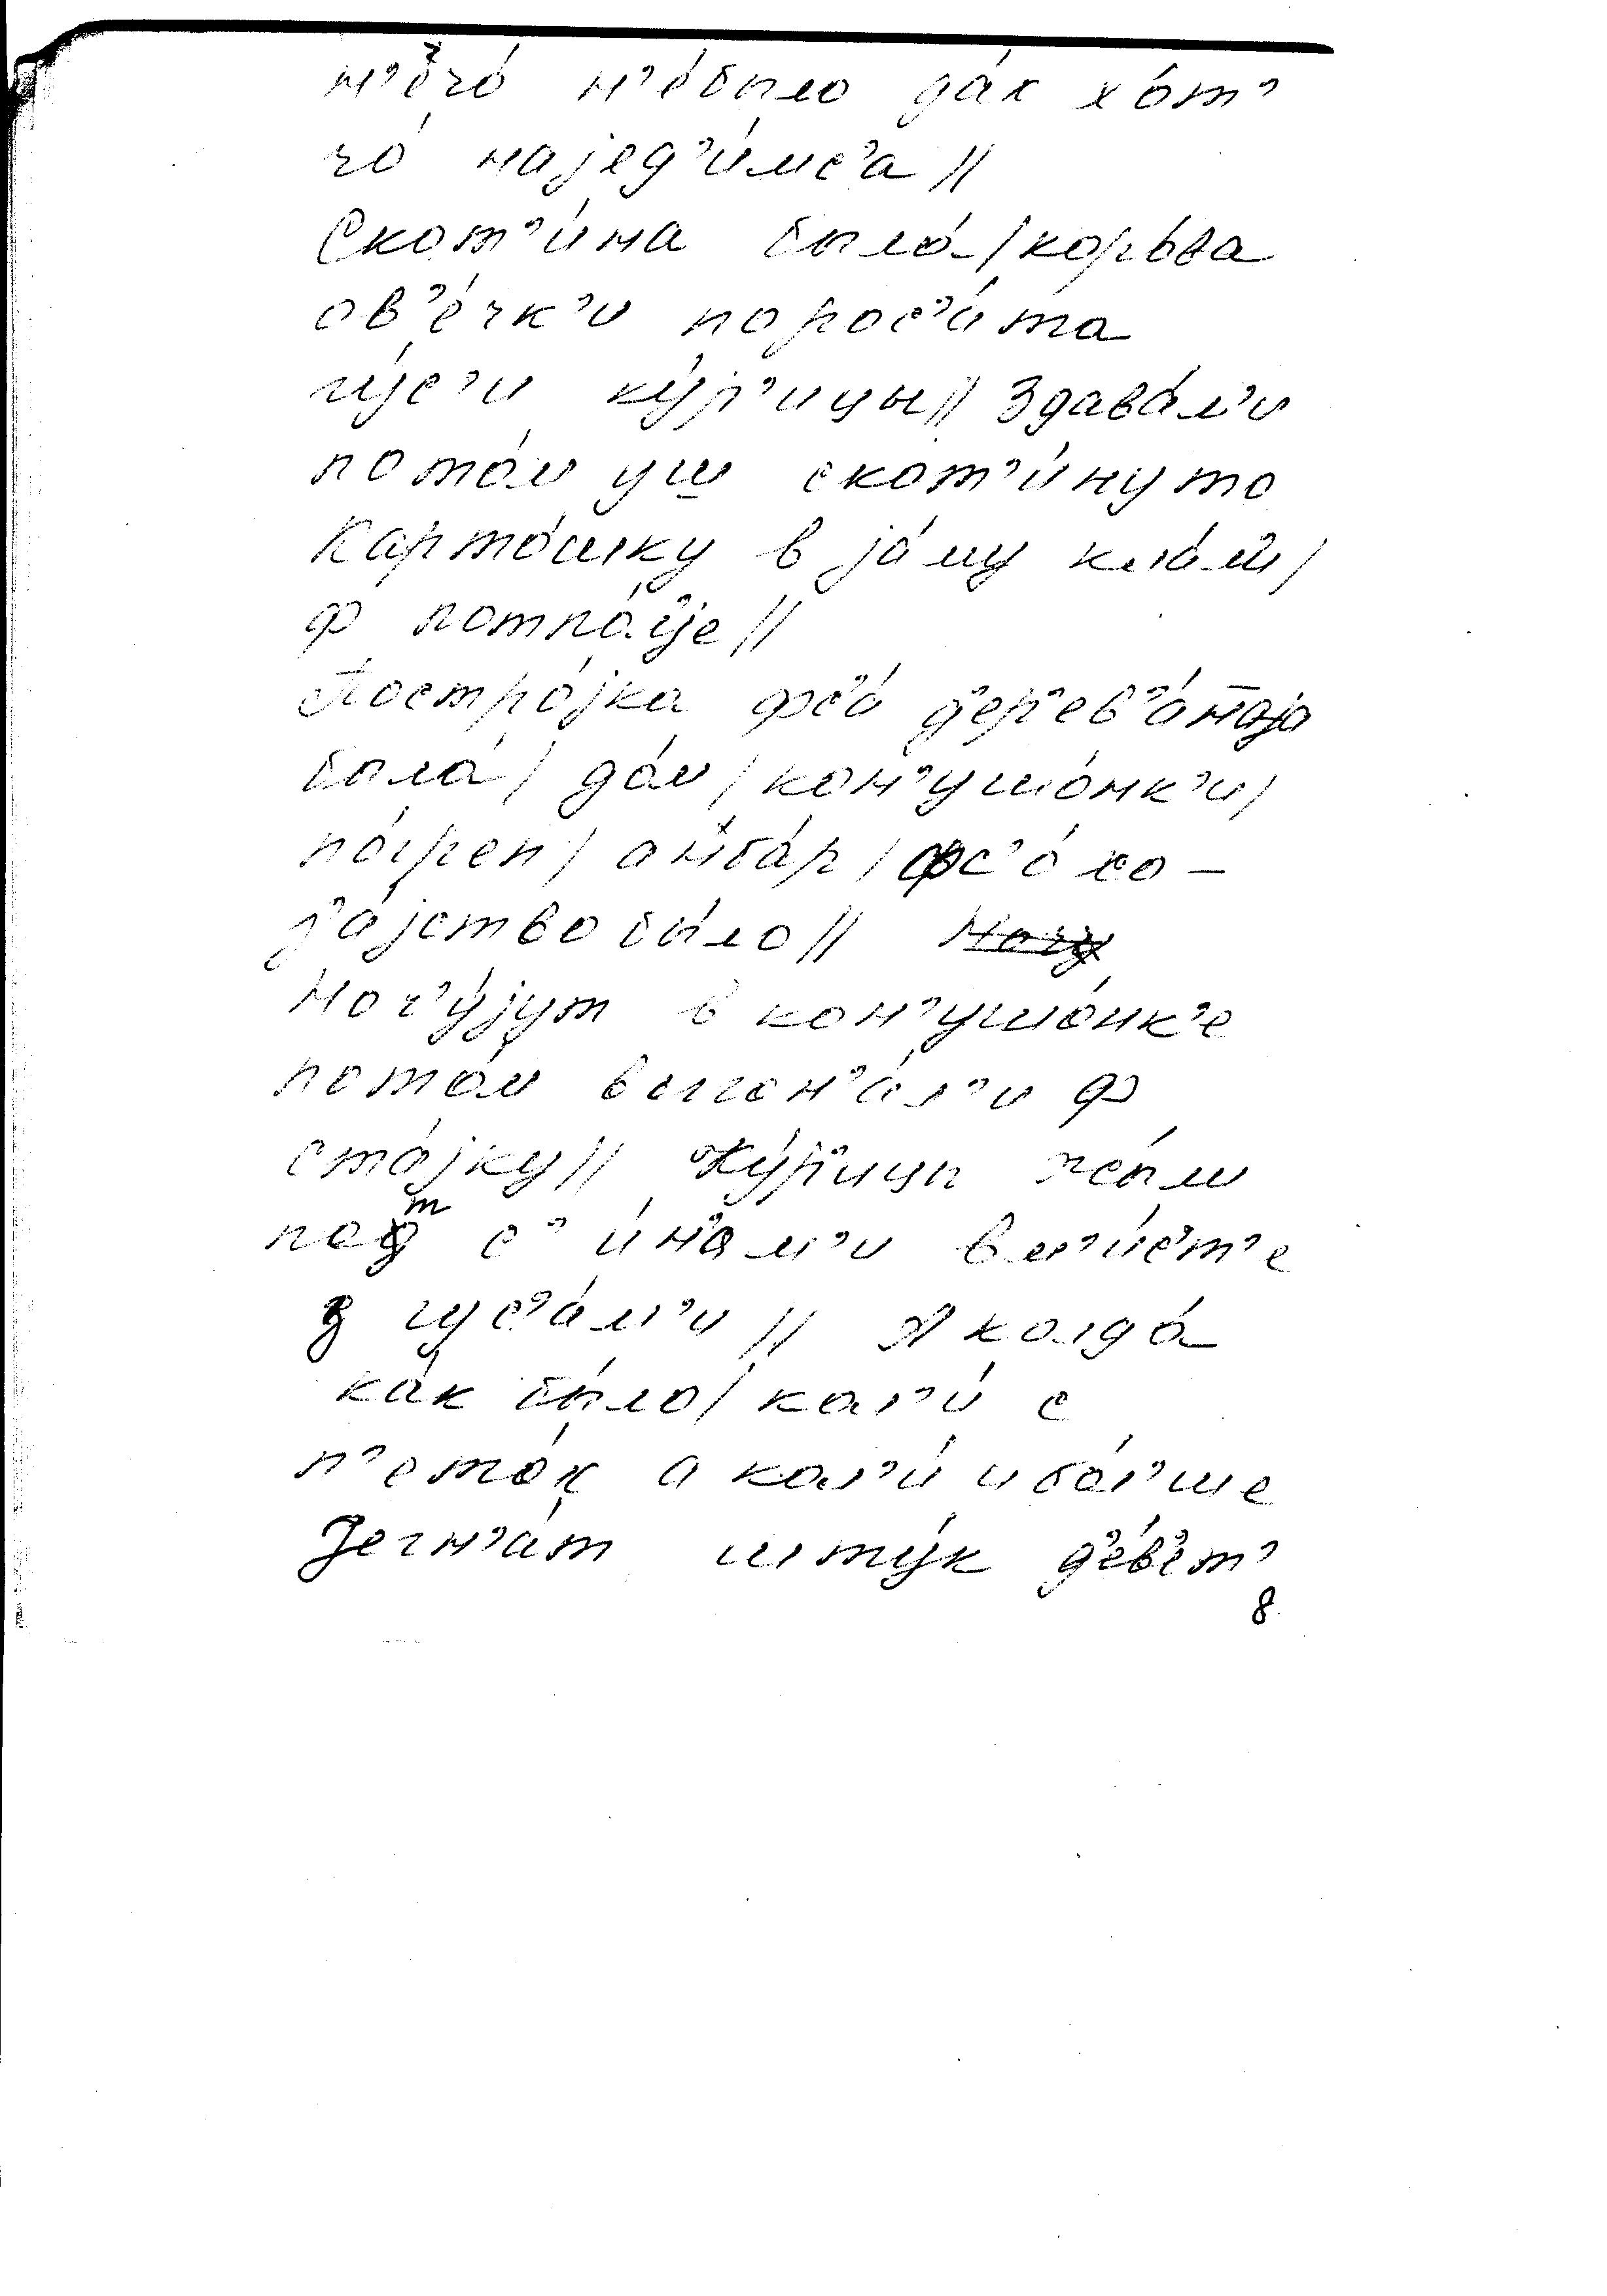 н’ечо́ н’е́было да́к хо́т’
чо́ најед’и́мс’а //
Скот’и́на была́ / коро́ва
ов’е́чк’и порос’а́та
гу́с’и ку́р’ицы // Здава́л’и
пото́м уш скот’и́нуто
Карто́шку в ја́му кла́л’и /
ф потпо́л’је //
Постро́јка фс’а́ д’ер’ев’а́наја
была́ / до́м / кон’ушо́нк’и /
по́греп / анба́р / фс’о́ хо-
з’а́јство бы́ло // Ночу
Ноч’у́јут в кон’ушо́нк’е
пото́м выгон’а́л’и ф
ста́јку // Ку́р’ицы
подт с’ и́н’ам’и вм’и́с’т’е
з гус’а́м’и // А когда́
ка́к бы́ло / кол’и́ с
п’ето́к а кол’и́ и бо́л’ше
јегн’а́т шту́к д’е́в’ет’
8